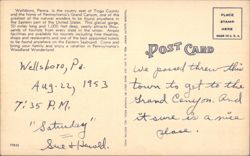 Wellsboro, Penna. is the county seat of Tioga County
and the home of Pennsylvania's Grand Canyon, one of the
greatest of the natural wonders to be found anywhere in
the Eastern part of the United States. This glacial gorge,
50 miles long and 1,000 feet deep, yearly attracts thou-
sands of tourists from every state in the union. Ample
facilities are available for tourists including fine theatres,
shops and restaurants and one of the best appointed hotels
to be found anywhere on the Eastern Seaboard. Come and
bring your family and enjoy a vacation in Pennsylvania's
Woodland Wonderland.
Wellsboro, Pa.
Aug. 22, 1953
7:35 P.M.
"Saturday"
Sue & Harold.
POST CARD
PLACE
STAMP
HERE
MADE IN U. S. A.
we passed threw this
town to get to the
Grand Canyon. And
it sure is a nice
place.